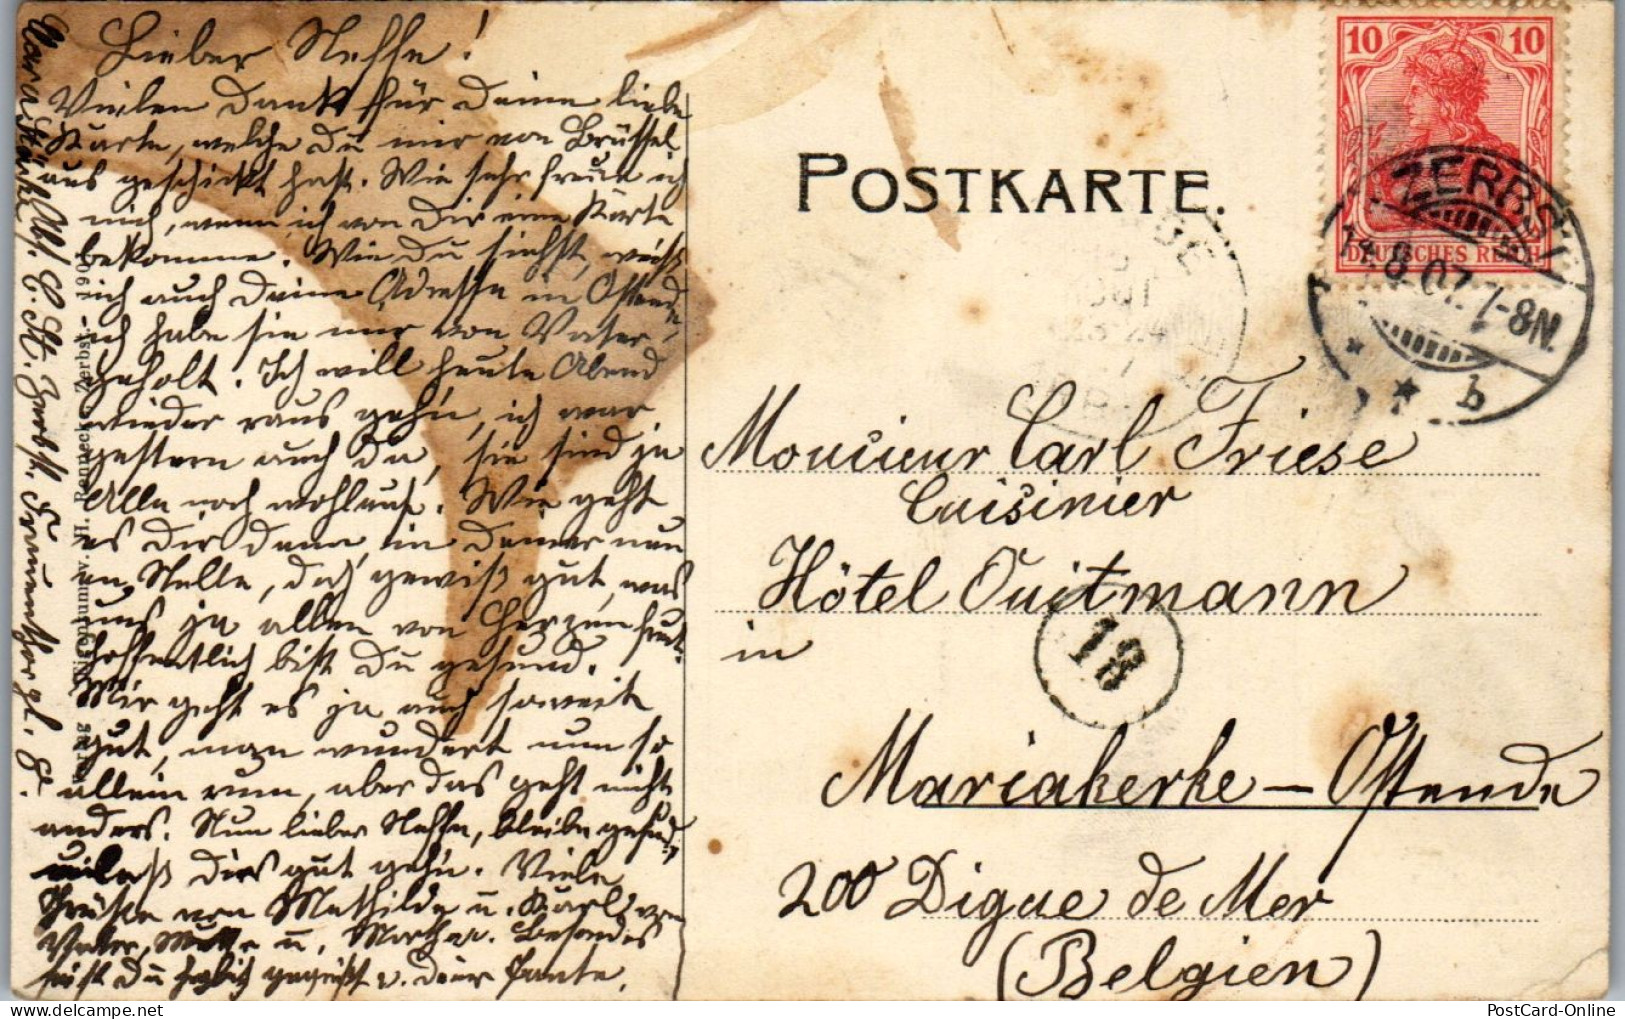 Lieber Neffe!
Vielen Dank für Deine liebe
Karte, welche Du mir von Brüssel
aus geschickt hast. Wie sehr freue ich
mich, wenn ich von Dir eine Karte
bekomme. Wie Du siehst, weiß
ich auch Deine Adresse in Ostende,
ich habe sie mir von Vater
geholt. Ich will heute Abend
wieder raus gehn, ich war
gestern auch da, sie sind ja
Alle noch wohlauf. Wie geht
es Dir denn in Deiner neu
en Stelle, doch gewiß gut, was
uns ja allen von Herzen freut.
Hoffentlich bist Du gesund.
Mir geht es ja auch soweit
gut, man wundert nun so
allein rum, aber das geht nicht
anders. Nun lieber Neffe, bleibe gesund,
Dirs gut gehn. Viele
Grüße von Mathilde u. Karl, von
Vater, Mutter u. Marthe. Besonders
seist Du gegrüßt v. deiner Tante.
Abs. E. St. Zerbst. Frauenthorpl. 8.
Verlag M. Rennecke, Zerbst. 190
POSTKARTE.
10 10
DEUTSCHES REICH
ZERBST
14.8.07. 7-8N.
* * b
18
Monsieur Carl Friese
Cuisinier
Hôtel Ouitmann
in
Mariakerke – Ostende
200 Digue de Mer
(Belgien)
PostCard-Online